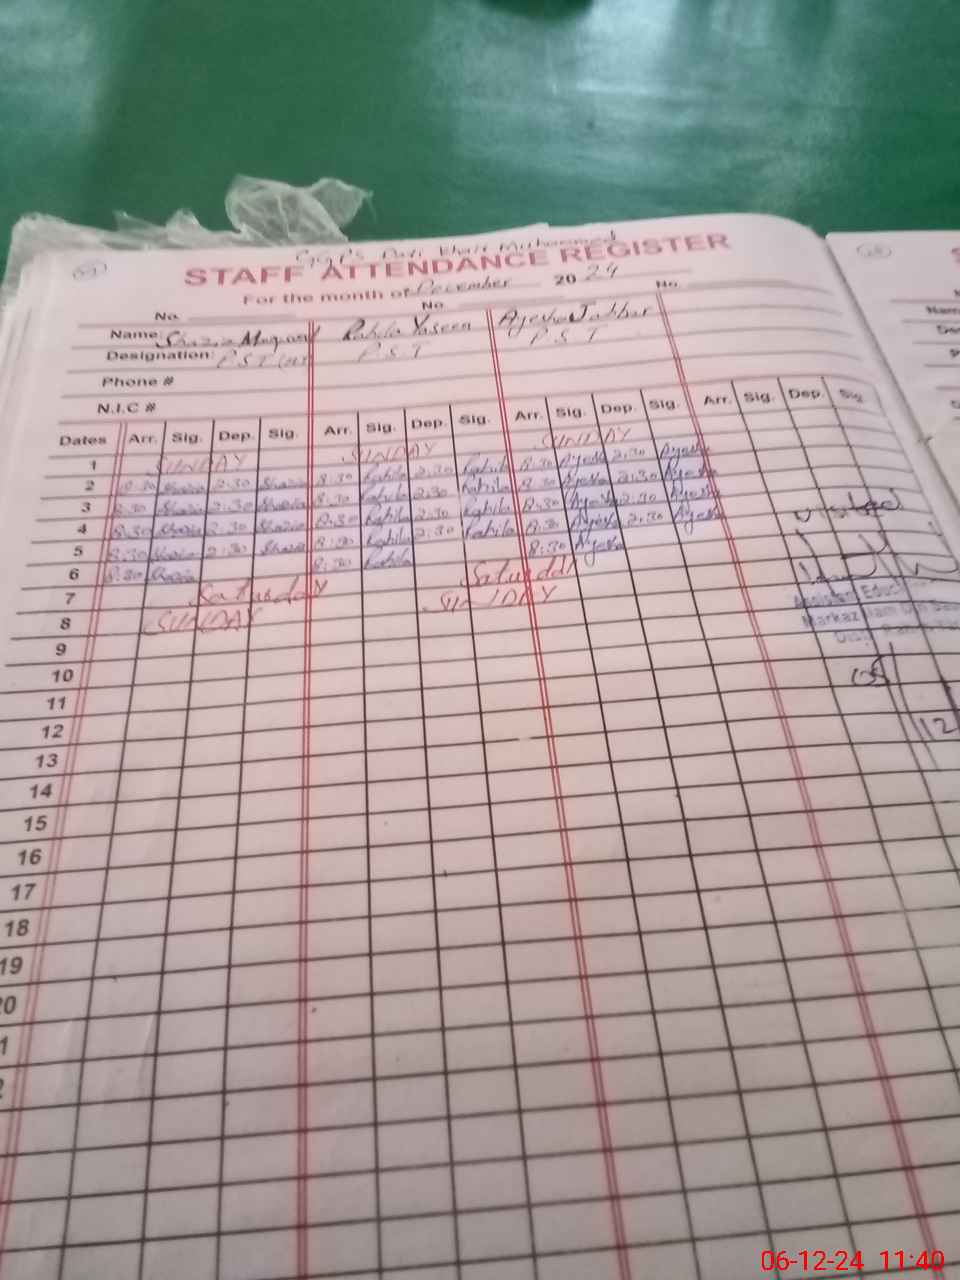 GGPS Khair Muhammad
STAFF ATTENDANCE REGISTER
For the month of December 2024
No. No. No.
Name: Shazia Rahila Yaseen Ayesha Jabbar
Designation: P.S.T P.S.T P.S.T
Phone #
N.I.C #
Dates Arr. Sig. Dep. Sig. Arr. Sig. Dep. Sig. Arr. Sig. Dep. Sig. Arr. Sig. Dep. Sig.
1 SUNDAY SUNDAY SUNDAY
2 8:30 Shazia 2:30 Shazia 8:30 Rahila 2:30 Rahila 8:30 Ayesha 2:30 Ayesha
3 8:30 Shazia 2:30 Shazia 8:30 Rahila 2:30 Rahila 8:30 Ayesha 2:30 Ayesha
4 8:30 Shazia 2:30 Shazia 8:30 Rahila 2:30 Rahila 8:30 Ayesha 2:30 Ayesha
5 8:30 Shazia 2:30 Shazia 8:30 Rahila 2:30 Rahila 8:30 Ayesha 2:30 Ayesha
6 8:30 Shazia 8:30 Rahila 8:30 Ayesha
7 Saturday Saturday
8 SUNDAY SUNDAY
visited
Assistant Educ
Markaz
9
10
11
12
12
13
14
15
16
17
18
19
20
06-12-24 11:40